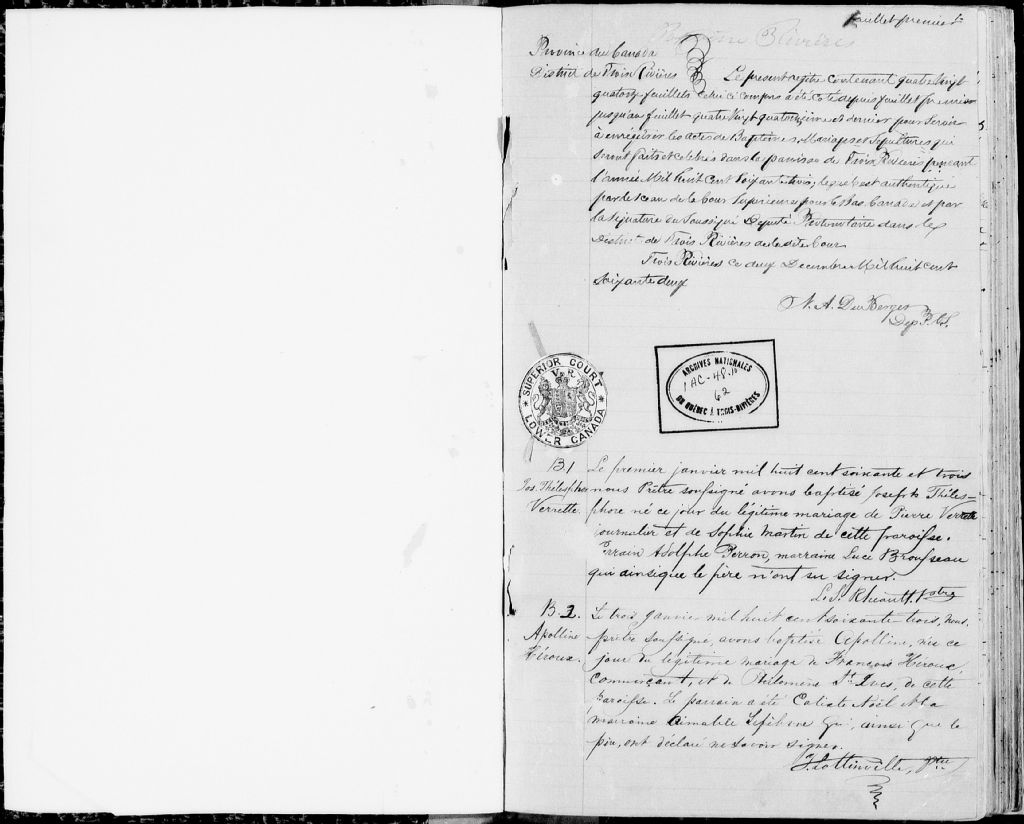 feuillet premier
Trois Rivières
Province du Canada
District de Trois Rivières
Le present registre contenant quatre vingt
quatorze feuillets celui ci compris a été coté depuis feuillet premier
jusqu'au feuillet quatre vingt quatorzième et dernier pour servir
à enrégistrer les actes de Baptêmes, Mariages et Sépultures qui
seront faits et célébrés dans la paroisse de Trois Rivières pendant
l'année Mil huit cent soixante trois, lequel est authentiqué
par le sceau de la Cour Supérieure pour le Bas Canada et par
la signature du Soussigné Député Protonotaire dans le
District de Trois Rivières de la dite Cour
Trois Rivières ce deux Decembre Mil huit cent
soixante deux
Dep P. C.S.
SUPERIOR COURT
V R
LOWER CANADA
ARCHIVES NATIONALES
1 AC-48.
62
DU QUÉBEC À TROIS-RIVIÈRES
B1
Jos. Thélesphore
Verrette
Le premier janvier mil huit cent soixante et trois
nous Prêtre soussigné avons baptisé Joseph Théles-
phore né ce jour du légitime mariage de Pierre Verrette
journalier et de Sophie Martin de cette paroisse.
Parrain Adolphe Perron, marraine Luce Brousseau
qui ainsi que le père n'ont su signer.
L. S. Rheault, Ptre
B 2.
Apolline
Héroux.
Le trois Janvier mil huit cent soixante trois, nous
prêtre soussigné, avons baptisé Apolline, née ce
jour du légitime mariage de François Héroux,
Commerçant, et de Philomène St Yves, de cette
Paroisse. Le parrain a été Calixte Noël & la
marraine Aimable Lefebvre qui, ainsi que le
père, ont déclaré ne savoir signer.
Lottinville, Ptre